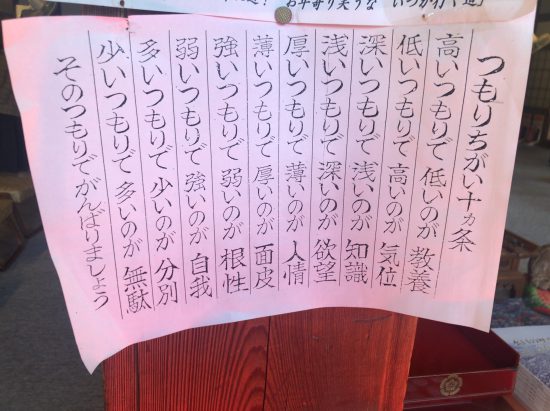 お年寄り笑うな いつか行く道
つもりちがい十ヵ条
高いつもりで 低いのが 教養
低いつもりで 高いのが 気位
深いつもりで 浅いのが 知識
浅いつもりで 深いのが 欲望
厚いつもりで 薄いのが 人情
薄いつもりで 厚いのが 面皮
強いつもりで 弱いのが 根性
弱いつもりで 強いのが 自我
多いつもりで 少いのが 分別
少いつもりで 多いのが 無駄
そのつもりでがんばりましょう